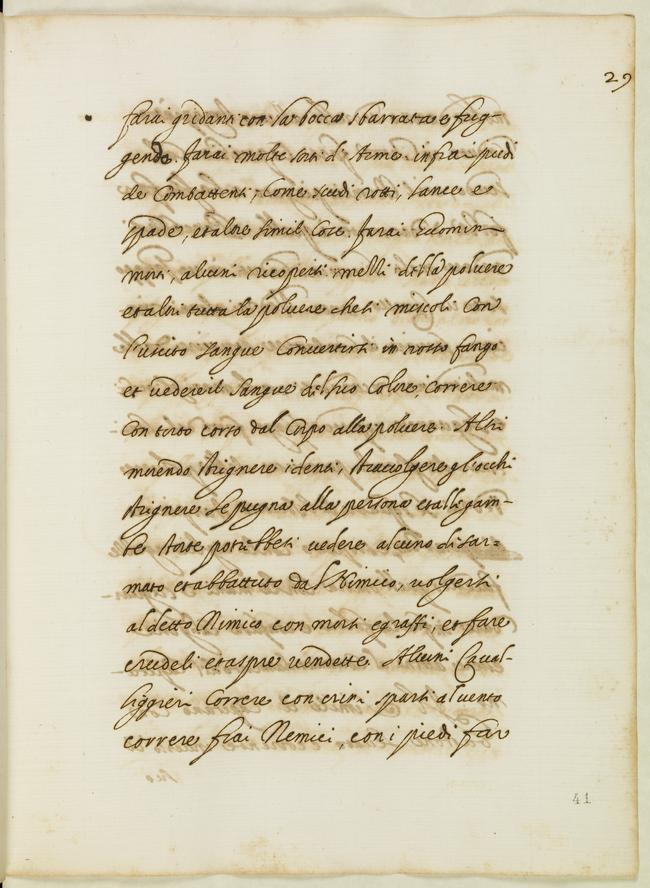 29
farai gridanti con la bocca sbarrata e fug-
gendo. farai molte sorti d'Arme infra i piedi
de Combattenti, Come scudi rotti, lance e
spade, et altre simil Cose. farai Huomini
morti, alcuni ricoperti mezzi dalla poluere
et altri tutta la poluere che si miscoli Con
l'uscito sangue Conuertirsi in rosso fango
et uedere il sangue del suo Colore, correre
Con torto corso dal Corpo alla poluere. Altri
morendo strignere i denti, strauolgere gl'occhi
strignere le pugna alla persona et alle gam-
be storte potrebbesi uedere alcuno disar-
mato et abbattuto dal Nimico, uolgersi
al detto Nimico con morsi e graffi, et fare
crudeli et aspre uendette. Alcuni Caual-
liggieri Correre con crini sparti al uento
correre frai Nemici, con i piedi far
41